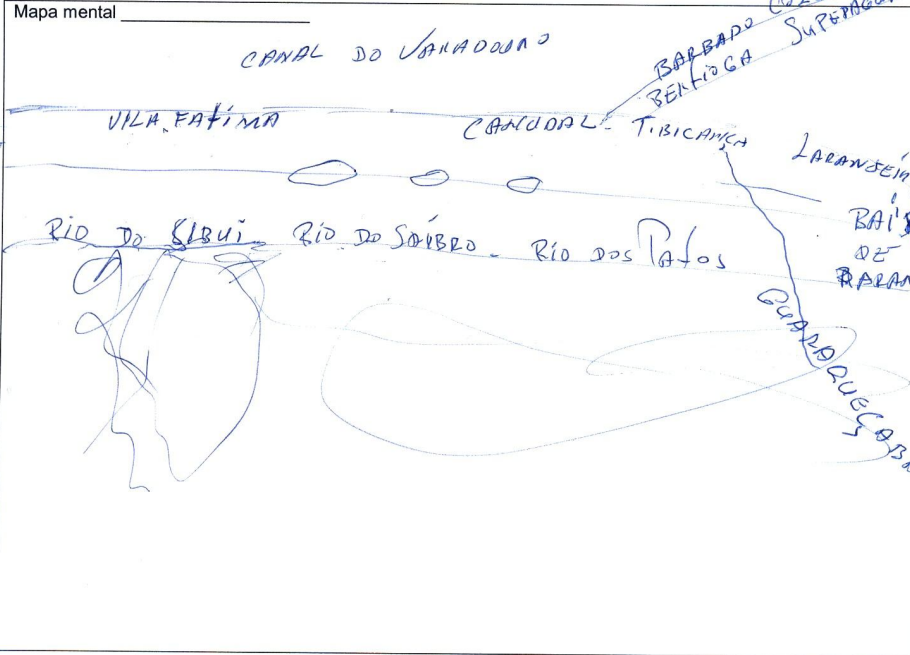 Mapa mental
CANAL DO VARADOURO
BARBADO
BERTIOGA SUPERAGUI
VILA FATIMA
CANUDAL - TIBICANGA
LARANJEIR
BAÍ
DE
PARAN
RIO DO SIBUÍ - RIO DO SAIBRO - RIO DOS PATOS
GUARAQUEÇABA